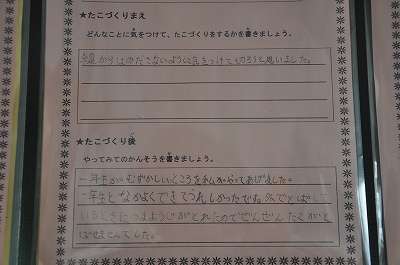 ★たこづくりまえ
どんなことに気をつけて、たこづくりをするかを書きましょう。
線からはみださないように気をつけて切ろうと思いました。
★たこづくり後
やってみてのかんそうを書きましょう。
一年生がむずかしいところを私がやってあげました。
一年生となかよくできてうれしかったです。外でとばして
いるときにつまようじがとれたのでぜんぜんたこがと
ばせませんでした。